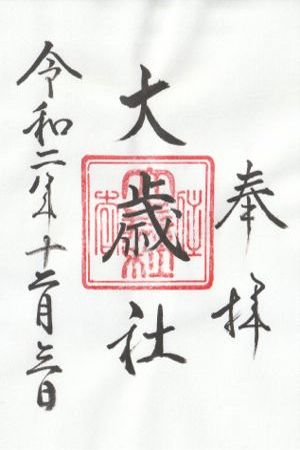 奉拝
大歳社
令和二年十二月三日